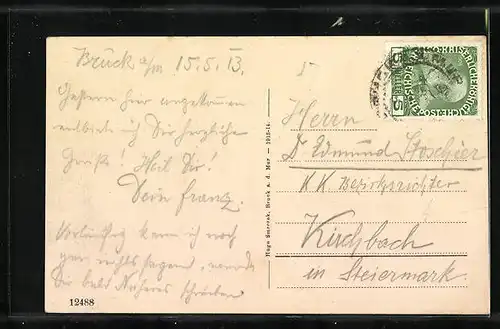 Bruck a/M 15.5.13.
Gestern hier angekommen
entbiete ich Dir herzliche
Grüße! Heil Dir!
Dein Franz.
Vorläufig kann ich noch
gar nichts sagen, werde
Dir bald Näheres schreiben
12488
Hugo Smreznk, Bruck a. d. Mur — 1912-14.
5 5
Herrn
Dr Edmund
K.K. Bezirksrichter
Kirchbach
in Steiermark.